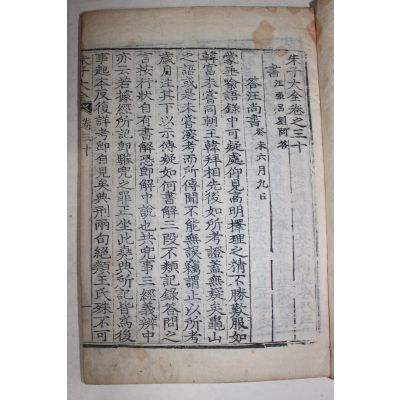 朱子大全卷之三十
書 汪張呂劉問答
答汪尚書 癸未六月九日
蒙垂喻語錄中可疑處仰見高明擇理之精不勝歎服如
韓富未嘗同朝王韓拜相先後如所考證蓋無疑矣龜山
之語或是未嘗深考而所傳聞不能無誤竊謂止以所考
歲月注其下以示傳疑如何書解三段不類記錄答問之
言按行狀自有書解恐即解中說也共兜事三經義辨中
亦云若據經所記即驩兜之罪正坐此堯典所記皆爲後
事起本反復詳考即自見矣典刑兩句絕類王氏殊不可
朱子大全 卷三十 一